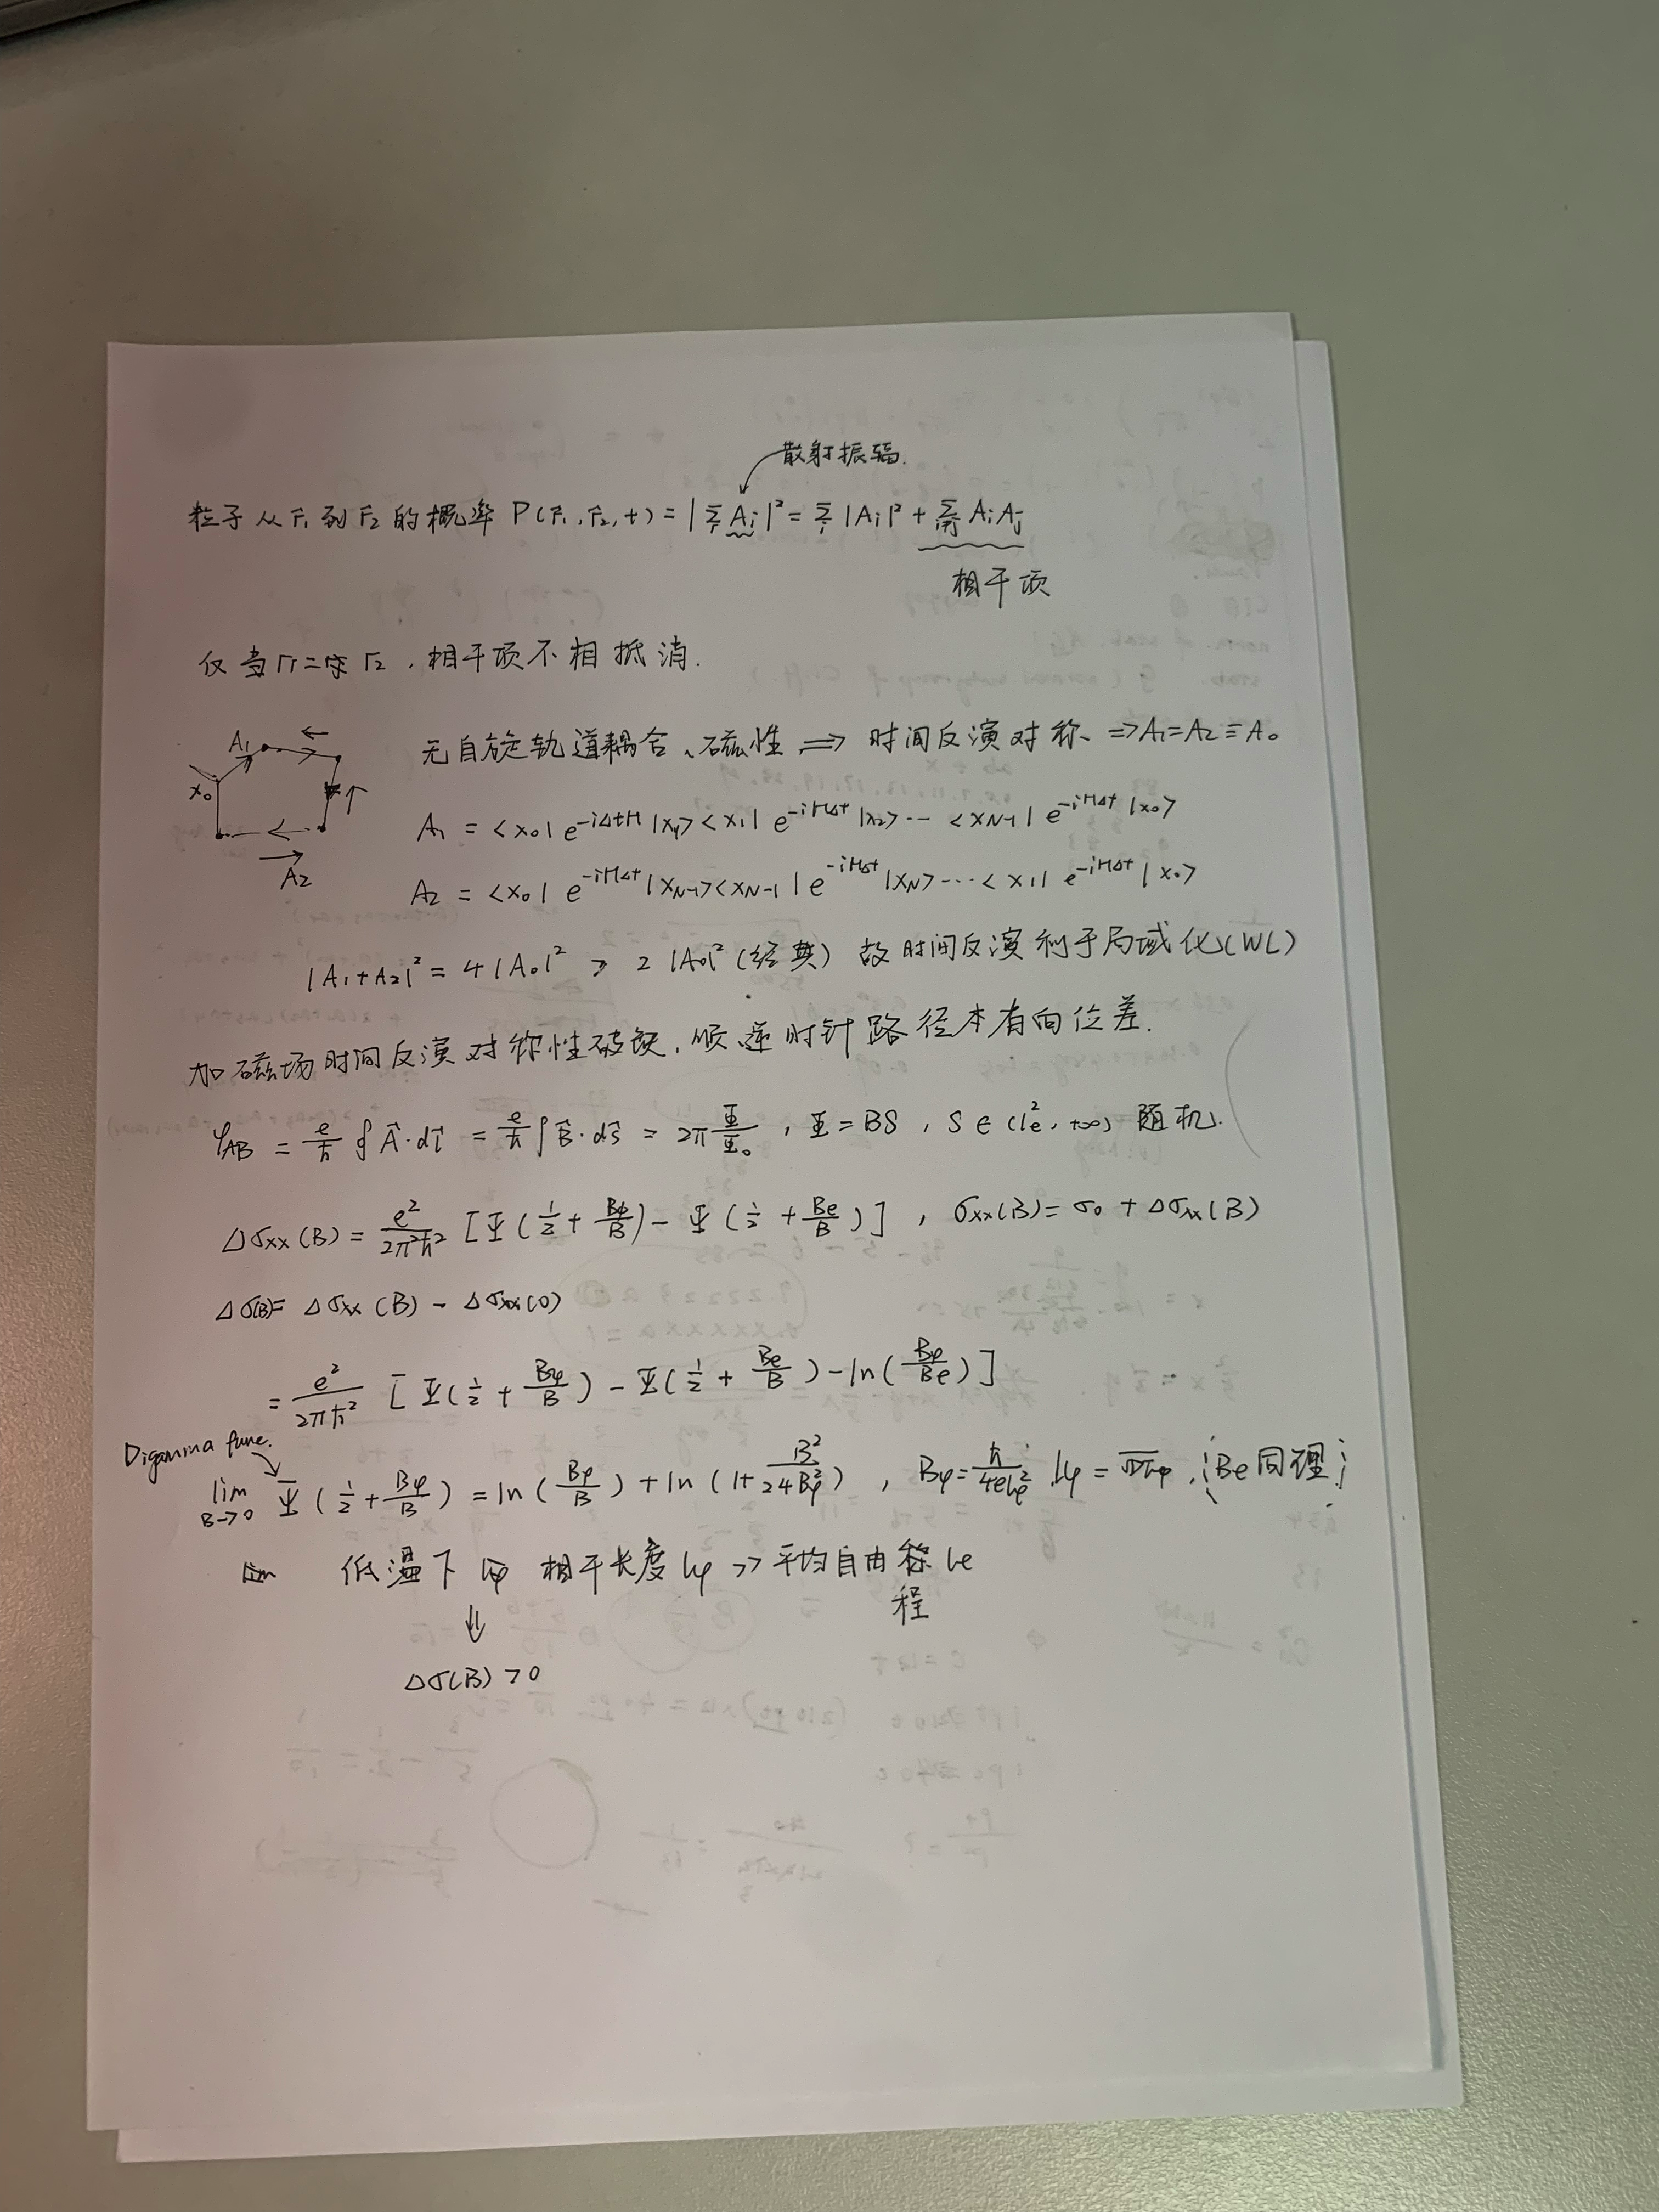 散射振幅.
粒子从 r₁ 到 r₂ 的概率 P(r₁, r₂, t) = |Σᵢ Aᵢ|² = Σᵢ |Aᵢ|² + Σᵢⱼ AᵢAⱼ
相干项
仅当 r₁ = r₂, 相干项不相抵消.
无自旋轨道耦合、磁性 ⟹ 时间反演对称 ⇒ A₁ = A₂ ≡ A₀
A₁
x₀
A₂
A₁ = <x₀| e^{-iΔtH} |x₁><x₁| e^{-iHΔt} |x₂> ⋯ <x_{N-1}| e^{-iHΔt} |x₀>
A₂ = <x₀| e^{-iHΔt} |x_{N-1}><x_{N-1}| e^{-iHΔt} |x_N> ⋯ <x₁| e^{-iHΔt} |x₀>
|A₁ + A₂|² = 4|A₀|² > 2|A₀|² (经典) 故时间反演利于局域化 (WL)
加磁场时间反演对称性破缺, 顺逆时针路径本有向位差.
φ_AB = e/ħ ∮ A⃗·dl⃗ = e/ħ ∫ B⃗·dS⃗ = 2π Φ/Φ₀, Φ = BS, S ∈ (l_e², +∞) 随机.
Δσxx(B) = e²/2π²ħ² [Ψ(1/2 + Bφ/B) − Ψ(1/2 + Be/B)], σxx(B) = σ₀ + Δσxx(B)
Δσ(B) = Δσxx(B) − Δσxx(0)
= e²/2πħ² [Ψ(1/2 + Bφ/B) − Ψ(1/2 + Be/B) − ln(Bφ/Be)]
Digamma func.
lim_{B→0} Ψ(1/2 + Bφ/B) = ln(Bφ/B) + ln(1 + B²/24Bφ²), Bφ = ħ/4elφ², lφ = √Dτφ, (Be同理)
低温下 相干长度 lφ >> 平均自由程 le
⇓
Δσ(B) > 0